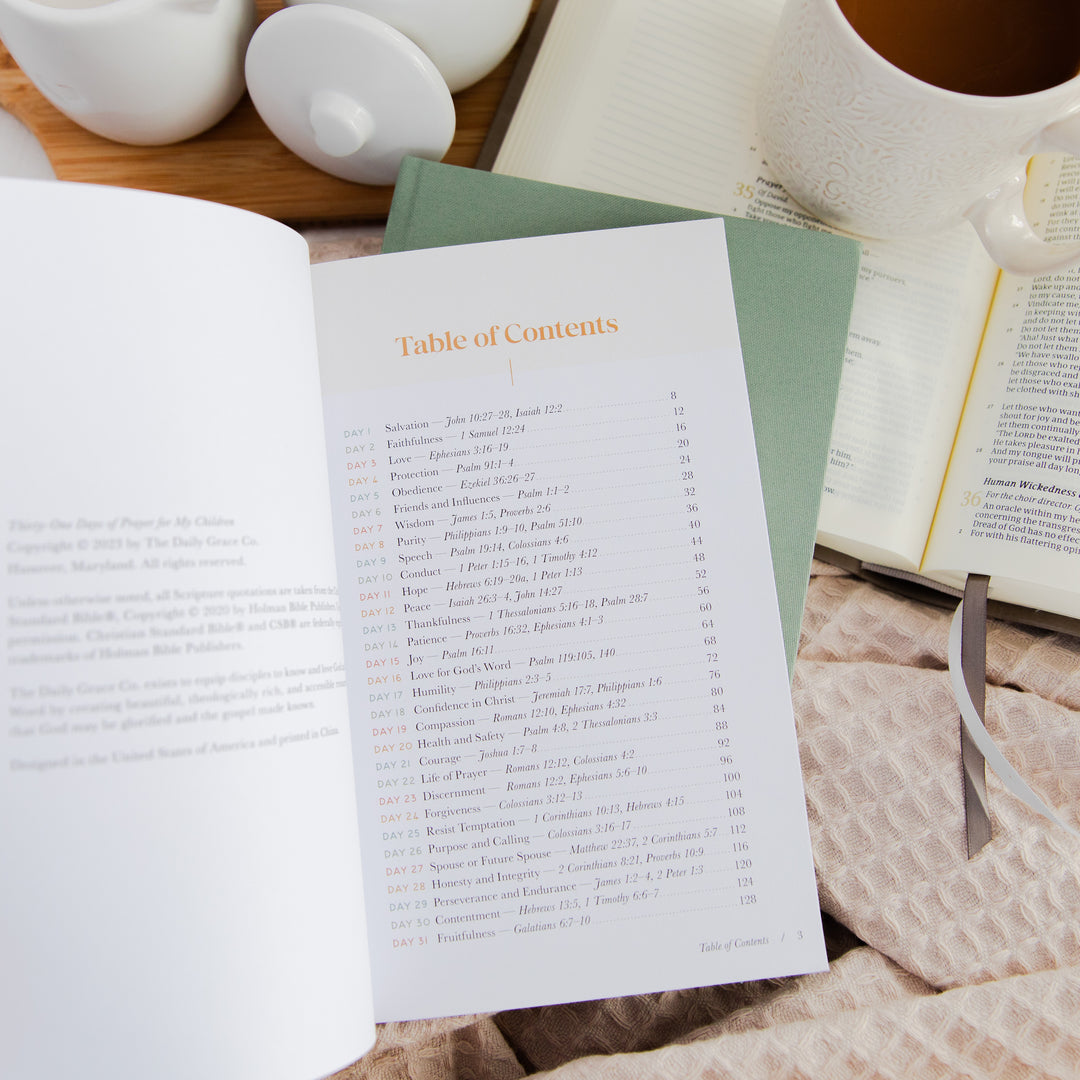 Thirty-One Days of Prayer for My Children
Copyright © 2023 by The Daily Grace Co.
Hanover, Maryland. All rights reserved.
Unless otherwise noted, all Scripture quotations are taken from the
Standard Bible®, Copyright © 2020 by Holman Bible Publishers.
permission. Christian Standard Bible® and CSB® are federally
trademarks of Holman Bible Publishers.
The Daily Grace Co. exists to equip disciples to know and love God
Word by creating beautiful, theologically rich, and accessible
that God may be glorified and the gospel made known.
Designed in the United States of America and printed in China
Table of Contents
DAY 1 Salvation — John 10:27–28, Isaiah 12:2 8
DAY 2 Faithfulness — 1 Samuel 12:24 12
DAY 3 Love — Ephesians 3:16–19 16
DAY 4 Protection — Psalm 91:1–4 20
DAY 5 Obedience — Ezekiel 36:26–27 24
DAY 6 Friends and Influences — Psalm 1:1–2 28
DAY 7 Wisdom — James 1:5, Proverbs 2:6 32
DAY 8 Purity — Philippians 1:9–10, Psalm 51:10 36
DAY 9 Speech — Psalm 19:14, Colossians 4:6 40
DAY 10 Conduct — 1 Peter 1:15–16, 1 Timothy 4:12 44
DAY 11 Hope — Hebrews 6:19–20a, 1 Peter 1:13 48
DAY 12 Peace — Isaiah 26:3–4, John 14:27 52
DAY 13 Thankfulness — 1 Thessalonians 5:16–18, Psalm 28:7 56
DAY 14 Patience — Proverbs 16:32, Ephesians 4:1–3 60
DAY 15 Joy — Psalm 16:11 64
DAY 16 Love for God's Word — Psalm 119:105, 140 68
DAY 17 Humility — Philippians 2:3–5 72
DAY 18 Confidence in Christ — Jeremiah 17:7, Philippians 1:6 76
DAY 19 Compassion — Romans 12:10, Ephesians 4:32 80
DAY 20 Health and Safety — Psalm 4:8, 2 Thessalonians 3:3 84
DAY 21 Courage — Joshua 1:7–8 88
DAY 22 Life of Prayer — Romans 12:12, Colossians 4:2 92
DAY 23 Discernment — Romans 12:2, Ephesians 5:6–10 96
DAY 24 Forgiveness — Colossians 3:12–13 100
DAY 25 Resist Temptation — 1 Corinthians 10:13, Hebrews 4:15 104
DAY 26 Purpose and Calling — Colossians 3:16–17 108
DAY 27 Spouse or Future Spouse — Matthew 22:37, 2 Corinthians 5:7 112
DAY 28 Honesty and Integrity — 2 Corinthians 8:21, Proverbs 10:9 116
DAY 29 Perseverance and Endurance — James 1:2–4, 2 Peter 1:3 120
DAY 30 Contentment — Hebrews 13:5, 1 Timothy 6:6–7 124
DAY 31 Fruitfulness — Galatians 6:7–10 128
Table of Contents / 3
35
of David
Oppose my
fight those who fight
my pursuers,
em away.
hem.
him?"
Lord, do not
Wake up and
to my cause,
Vindicate me,
in keeping wi
and do not let
Do not let them
"Aha! Just what
Do not let them
"We have swallo
Let those who re
be disgraced and
let those who exa
be clothed with sh
27 Let those who wan
shout for joy and be
let them continually
"The LORD be exalted
He takes pleasure in
28 And my tongue will p
your praise all day lon
Human Wickedness
For the choir director. O
36 An oracle within my he
concerning the transgres
Dread of God has no effec
2 For with his flattering opin